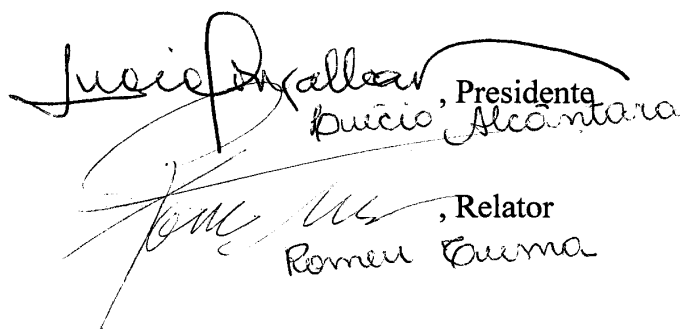 , Presidente
Lucio Alcântara
, Relator
Romeu Tuma